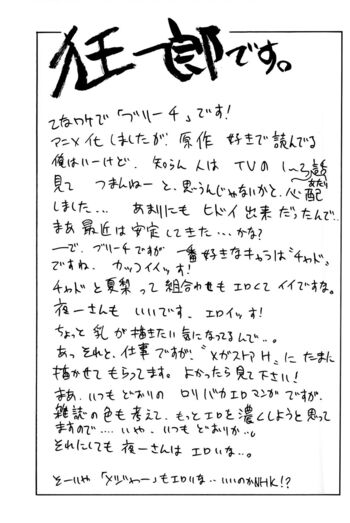 狂一郎です。
てなワケで「ブリーチ」です!
アニメ化しましたが、原作 好きで読んでる
俺はいーけど、知らん人は TVの1〜2話
あたり
見て つまんねーと、思うんじゃないかと、心配
しました... あまりにも ヒドイ出来 だったんで..
まあ最近は安定してきた...かな?
一で、ブリーチですが 一番好きなキャラは"チャド"
ですね、カッコイイッす!
チャドと夏梨って組合わせも エロくて イイですな。
夜一さんも いいです、エロイッす!
ちょっと 乳が描きたい気になってるんで..。
あっ それと、仕事ですが、"メガストアH"に たまに
描かせて もらってます。よかったら見て下さい!
まあ、いつもどおりの ロリバカエロマンガですが、
雑誌の色も考えて、もっとエロを濃くしようと思って
ますので..... いや、いつもどおりか..。
それにしても 夜一さんは エロいな..。
そーいや「メジャー」もエロいな.. いいのかNHK!?